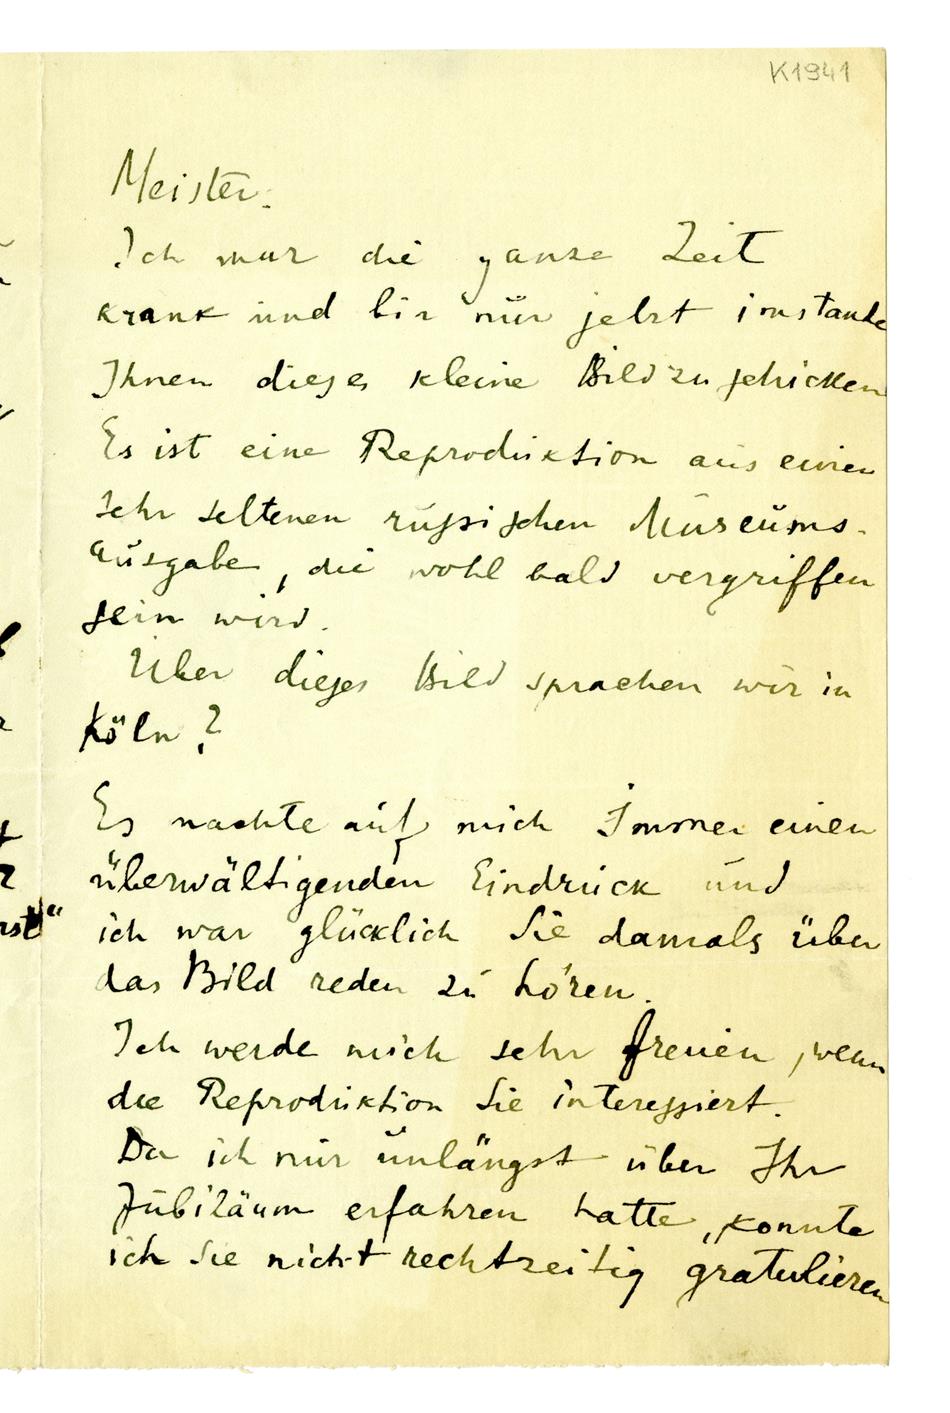 K1941
Meister.
Ich war die ganze Zeit
krank und bin nur jetzt imstande
Ihnen dieses kleine Bild zu schicken
Es ist eine Reproduktion aus einen
sehr seltenen russischen Museums-
ausgabe, die wohl bald vergriffen
sein wird.
Über dieses Bild sprachen wir in
Köln?
Es machte auf mich Immer einen
überwältigenden Eindruck und
ich war glücklich Sie damals über
das Bild reden zu hören.
Ich werde mich sehr freuen, wenn
die Reproduktion Sie interessiert.
Da ich nur unlängst über Ihr
Jubiläum erfahren hatte, konnte
ich Sie nicht rechtzeitig gratulieren